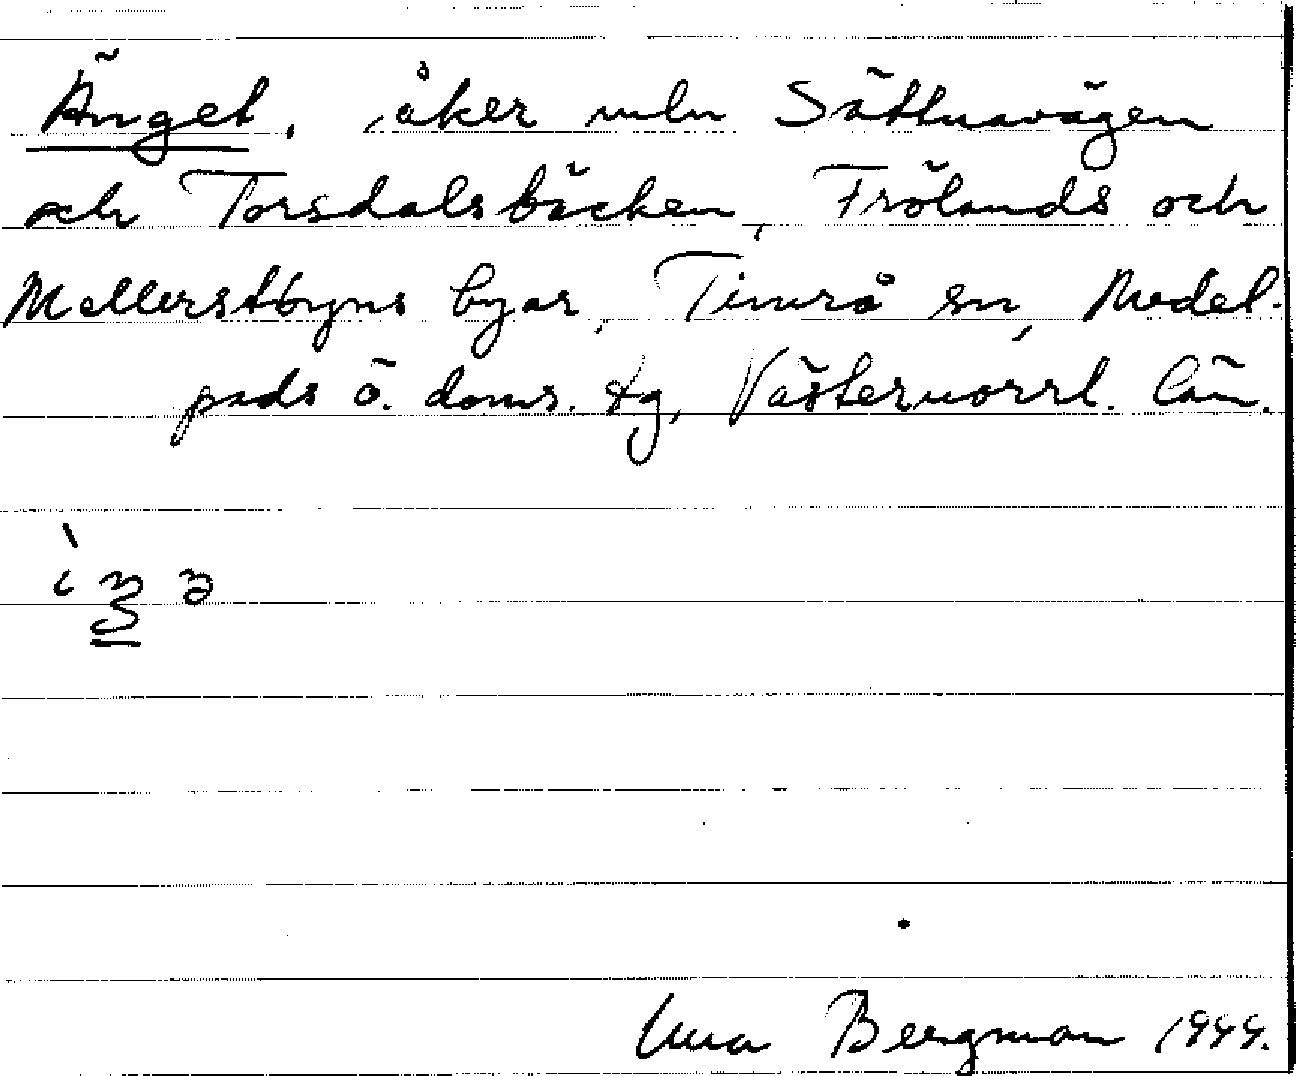 Änget, åker mln Sättnavägen
och Torsdalsbäcken, Frölands och
Mellerstbyns byar, Timrå sn, Medel-
pads ö. doms. tg, Västernorrl. län.
Bergman 1944.